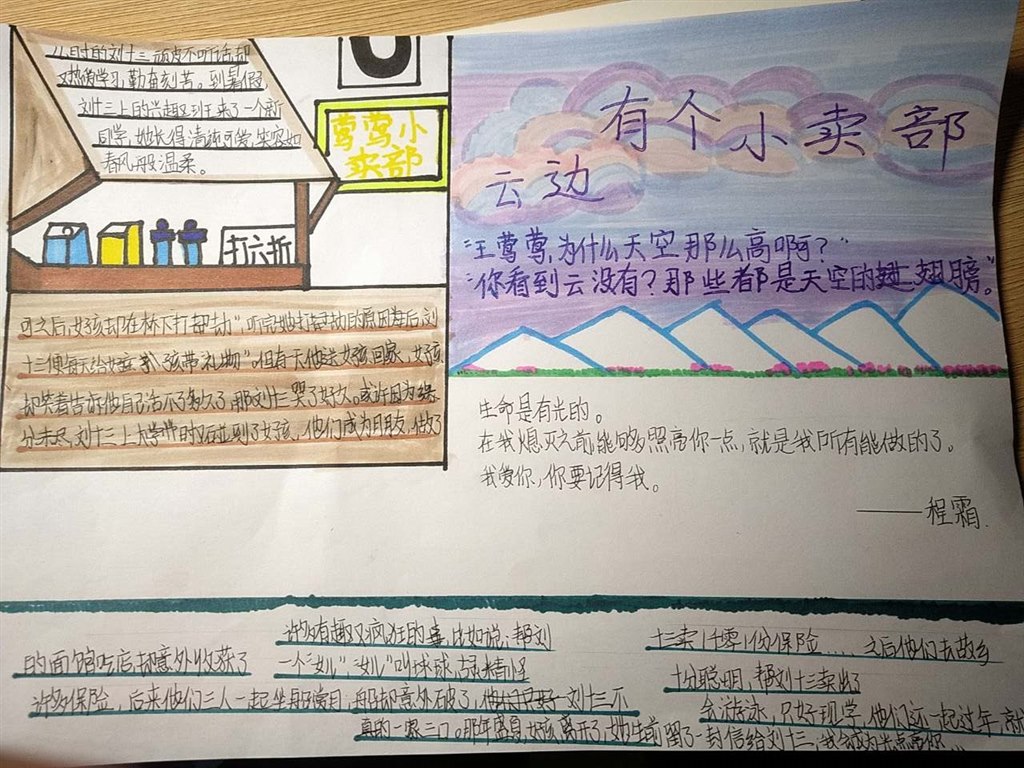 儿时的刘十三顽皮不听话却
又热爱学习,勤奋刻苦。到暑假
刘十三上的兴趣班来了一个新
同学,她长得清纯可爱,笑容如
春风般温柔。
莺莺小
卖部
打六折
可之后,女孩却在林下"打劫",听完她打劫的原因之后,刘
十三便每天给女孩带礼物"。但有一天他送女孩回家,女孩
却笑着告诉他自己活不了多久了,那刘十三哭了好久。或许因为缘
分未尽,刘十三上大学的时后碰到了女孩,他们成为朋友,做了
云边
有个小卖部
"王莺莺,为什么天空那么高啊?"
"你看到云没有?那些都是天空的翅膀。"
生命是有光的。
在我熄灭之前,能够照亮你一点,就是我所有能做的了。
我爱你,你要记得我。
——程霜
许多有趣又疯狂的事,比如说:帮刘
十三卖1千零1份保险....之后他们去故乡
的面馆吃店却意外收获了
一个"女儿","女儿"叫球球,古灵精怪
十分聪明,帮刘十三卖出了
许多保险,后来他们三人一起坐船演习,船却意外破了,刘十三不
会游泳,只好现学,他们还一起过年,就
真的一家三口。那年盛夏,女孩离开了,她生前留了一封信给刘十三,我会成为光点亮你....